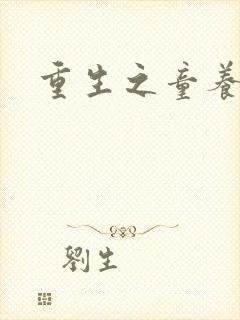 重生之童養
劉生